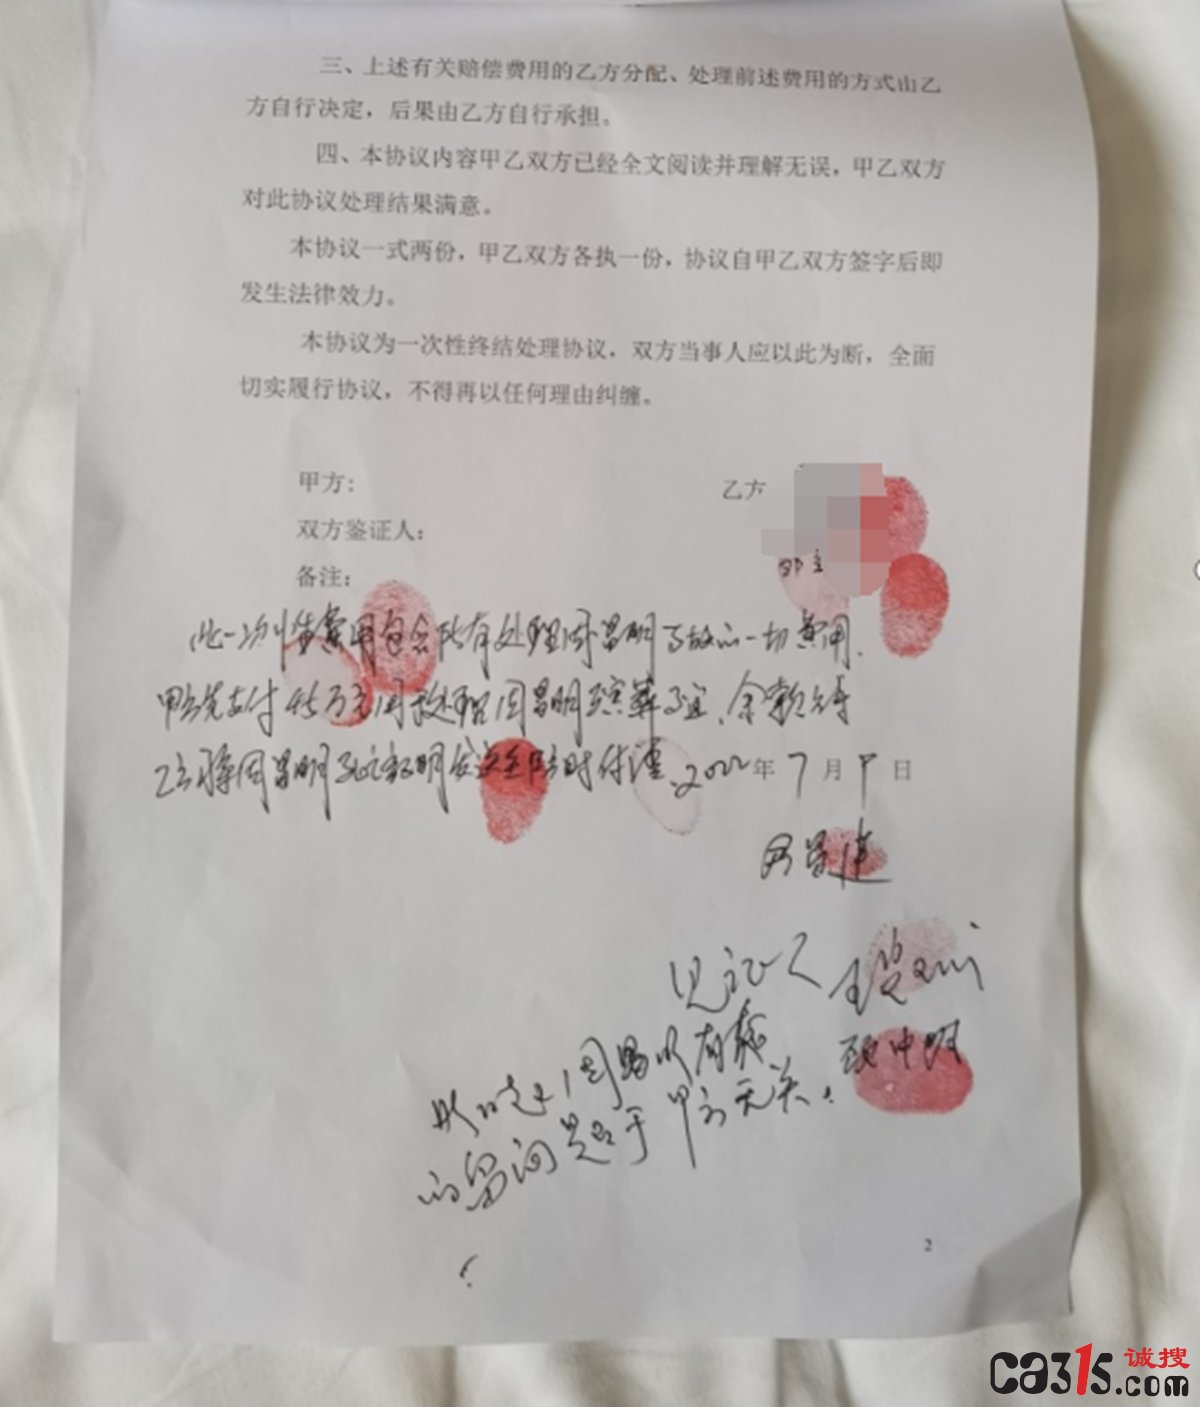 三、上述有关赔偿费用的乙方分配、处理前述费用的方式由乙
方自行决定，后果由乙方自行承担。
四、本协议内容甲乙双方已经全文阅读并理解无误，甲乙双方
对此协议处理结果满意。
本协议一式两份，甲乙双方各执一份，协议自甲乙双方签字后即
发生法律效力。
本协议为一次性终结处理协议，双方当事人应以此为断，全面
切实履行协议，不得再以任何理由纠缠。
甲方：
乙方
双方鉴证人：
备注：
此一次性费用包含所有处理周昌明事故的一切费用.
甲方先支付45万元用于处理周昌明殡葬事宜、余款待
乙方将周昌明 证明 时付清.2022年7月 日
周昌建
见证人
周昌明
的 问题于甲方无关.
2
ca315诚搜.com